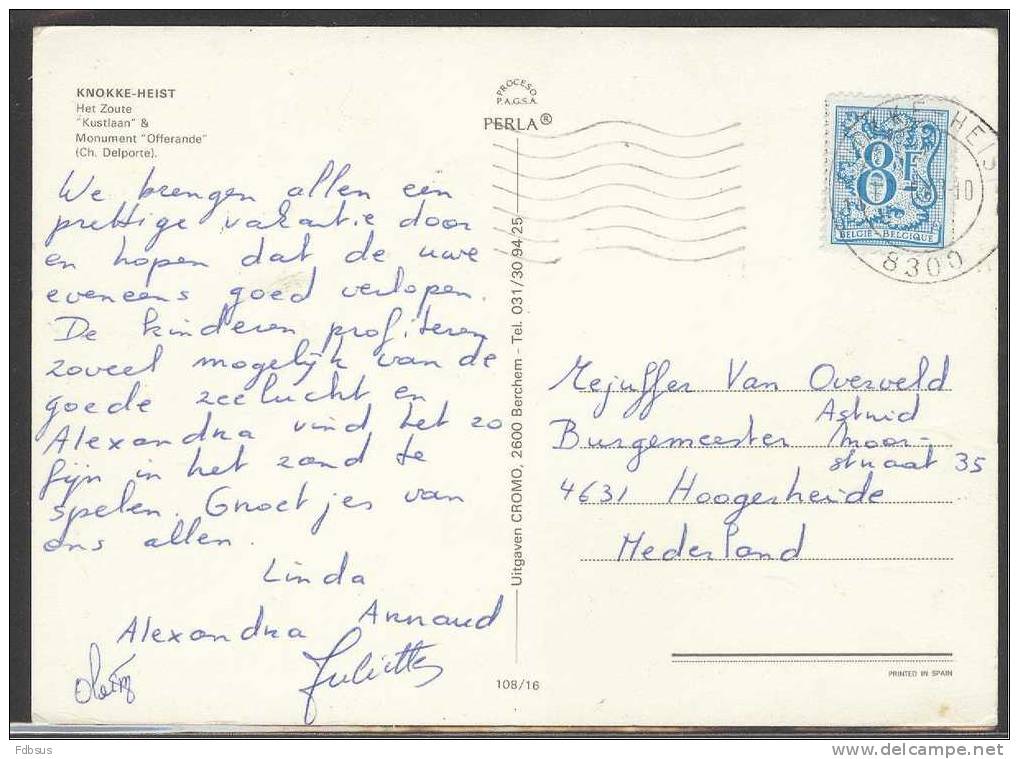 KNOKKE-HEIST
Het Zoute
"Kustlaan" &
Monument "Offerande"
(Ch. Delporte).
We brengen allen een
prettige vakantie door
en hopen dat de uwe
eveneens goed verlopen.
De kinderen profiteren
zoveel mogelijk van de
goede zeelucht en
Alexandra vind het zo
fijn in het zand te
spelen. Groetjes van
ons allen.
Linda
Arnaud
Alexandra
Juliette
PROCESO
P.A.G.S.A.
PERLA®
Uitgaven CROMO, 2600 Berchem - Tel. 031/30 94 25
108/16
8F
BELGIË-BELGIQUE
KKE-HEIS
-10
8300
Mejuffer Van Overveld
Astrid
Burgemeester Moor-
straat 35
4631 Hoogerheide
Nederland
PRINTED IN SPAIN
Fdbsus
www.delcampe.net